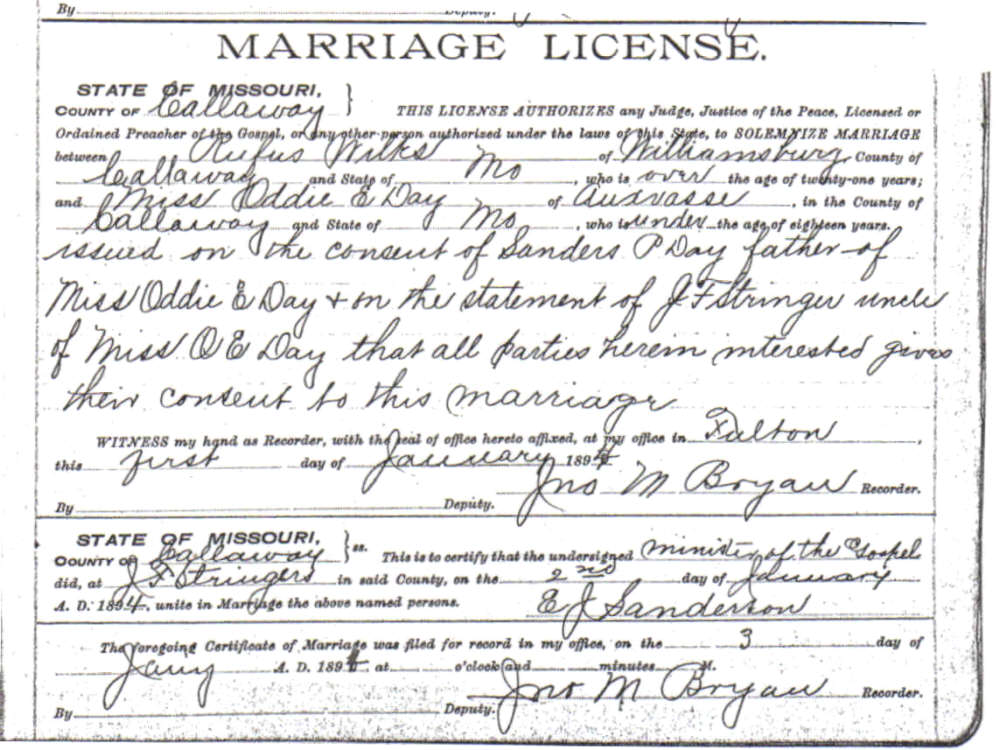 By Deputy.
MARRIAGE LICENSE.
STATE OF MISSOURI,
COUNTY OF Callaway } THIS LICENSE AUTHORIZES any Judge, Justice of the Peace, Licensed or
Ordained Preacher of the Gospel, or any other person authorized under the laws of this State, to SOLEMNIZE MARRIAGE
between Rufus Wilks of Williamsburg, County of
Callaway and State of Mo, who is over the age of twenty-one years;
and Miss Oddie E Day of Auxvasse, in the County of
Callaway and State of Mo, who is under the age of eighteen years.
issued on the consent of Sanders P Day father of
Miss Oddie E Day & on the statement of J F Stringer uncle
of Miss O E Day that all parties herein interested gives
their consent to this marriage
WITNESS my hand as Recorder, with the seal of office hereto affixed, at my office in Fulton,
this first day of January 1894
Jno M Bryan Recorder.
By Deputy.
STATE OF MISSOURI,
COUNTY OF Callaway } ss. This is to certify that the undersigned Minister of the Gospel
did, at J F Stringers in said County, on the 2nd day of January
A. D. 1894, unite in Marriage the above named persons. E J Sanderson
The foregoing Certificate of Marriage was filed for record in my office, on the 3 day of
Jany A. D. 1894 at o'clock and minutes M.
Jno M Bryan Recorder.
By Deputy.